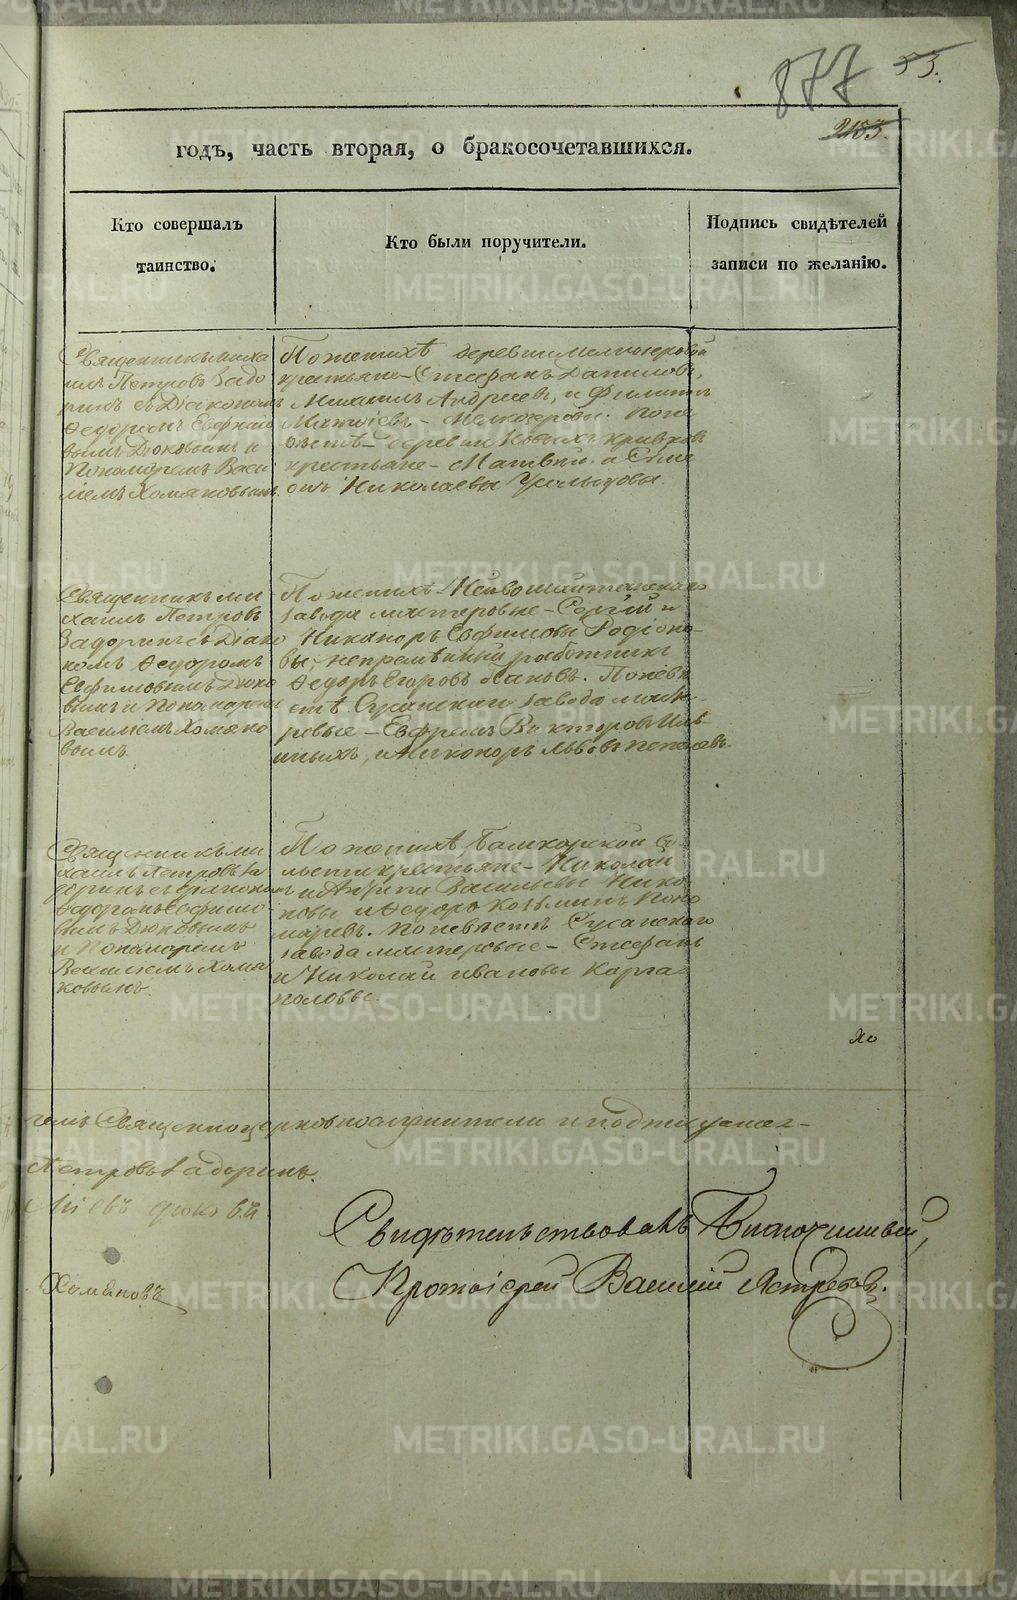 877 53.
2183.
годъ, часть вторая, о бракосочетавшихся.
Кто совершалъ
таинство.
Кто были поручители.
Подпись свидѣтелей
записи по желанію.
Священникъ Миха
илъ Петровъ Задо
ринъ съ Діакономъ
Ѳедоромъ Евфимо
вымъ Дюковымъ и
Пономаремъ Васи
ліемъ Хомяковымъ.
По женихѣ деревни Мелкозеровой
крестьяне – Стефанъ Даниловъ,
Михаилъ Андреевъ, и Филиппъ
Матѳіевъ – Мелкозеровы. По не
вѣстѣ – деревни Новыхъ Кривков
крестьяне – Матвѣй и Симе
онъ Николаевы Усольцовы.
Священникъ Ми
хаилъ Петровъ
Задоринъ съ Діако
номъ Ѳедоромъ
Евфимовымъ Дюко
вымъ и Пономаремъ
Василіемъ Хомяко
вымъ.
По женихѣ – Нейвошайтанскаго
завода мастеровые – Сергій и
Никаноръ Евфимовы Родіоно-
вы, непремѣнный работникъ
Ѳедоръ Егоровъ Пановъ. По невѣ
стѣ Сусанскаго завода масте-
ровые – Ефремъ Викторовъ Иль
иныхъ, и Никоноръ Львовъ
Священникъ Ми
хаилъ Петровъ За
доринъ съ Діакономъ
Ѳедоромъ Евфимо-
вымъ Дюковымъ
и Пономаремъ
Василіемъ Хомя
ковымъ.
По женихѣ Башкарской во
лости крестьяне – Николай
и Васильевы Нико
новы и Ѳедоръ Козьминъ Поно
маревъ. По невѣстѣ Сусанскаго
завода мастеровые – Стефанъ
и Николай Ивановы Карга
половы.
Хо
Священноцерковнослужители и подписуемся –
Петровъ Задоринъ.
Дюковъ
Хомяковъ
Свидѣтельствовалъ Благочинный,
Протоіерей Василій Ястребовъ.
METRIKI.GASO-URAL.RU